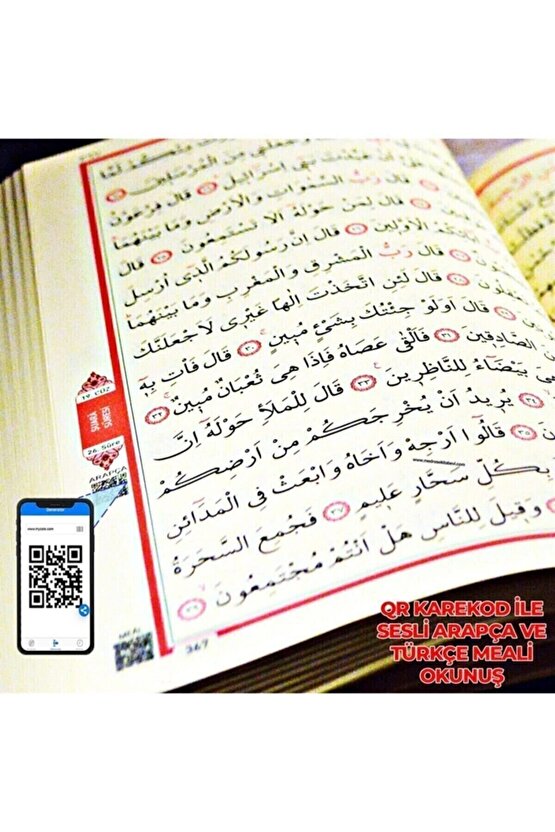 مِنَ الْمُرْسَلِينَ
عَبَّدْتَ بَنِي إِسْرَائِيلَ قَالَ فِرْعَوْنُ
قَالَ رَبُّ السَّمٰوَاتِ وَالْاَرْضِ وَمَا بَيْنَهُمَا
قَالَ لِمَنْ حَوْلَهُ اَلَا تَسْتَمِعُونَ قَالَ
الْاَوَّلِينَ قَالَ اِنَّ رَسُولَكُمُ الَّذِي اُرْسِلَ
قَالَ رَبُّ الْمَشْرِقِ وَالْمَغْرِبِ وَمَا بَيْنَهُمَا
قَالَ لَئِنِ اتَّخَذْتَ اِلٰهًا غَيْرِي لَاَجْعَلَنَّكَ
قَالَ اَوَلَوْ جِئْتُكَ بِشَيْءٍ مُبِينٍ ٣٠ قَالَ فَأْتِ بِهِ
الصَّادِقِينَ ٣١ فَاَلْقٰى عَصَاهُ فَاِذَا هِيَ ثُعْبَانٌ مُبِينٌ ٣٢
هِيَ بَيْضَاءُ لِلنَّاظِرِينَ ٣٣ قَالَ لِلْمَلَاِ حَوْلَهُ اِنَّ
٣٤ يُرِيدُ اَنْ يُخْرِجَكُمْ مِنْ اَرْضِكُمْ
٣٥ قَالُوا اَرْجِهْ وَاَخَاهُ وَابْعَثْ فِي الْمَدَائِنِ
بِكُلِّ سَحَّارٍ عَلِيمٍ ٣٧ فَجُمِعَ السَّحَرَةُ
وَقِيلَ لِلنَّاسِ هَلْ اَنْتُمْ مُجْتَمِعُونَ ٣٩
19. CÜZ
ŞUARA SURESİ
26. Sûre
ARAPÇA
MEAL
367
Generator
QR KAREKOD İLE
SESLİ ARAPÇA VE
TÜRKÇE MEALİ
OKUNUŞ